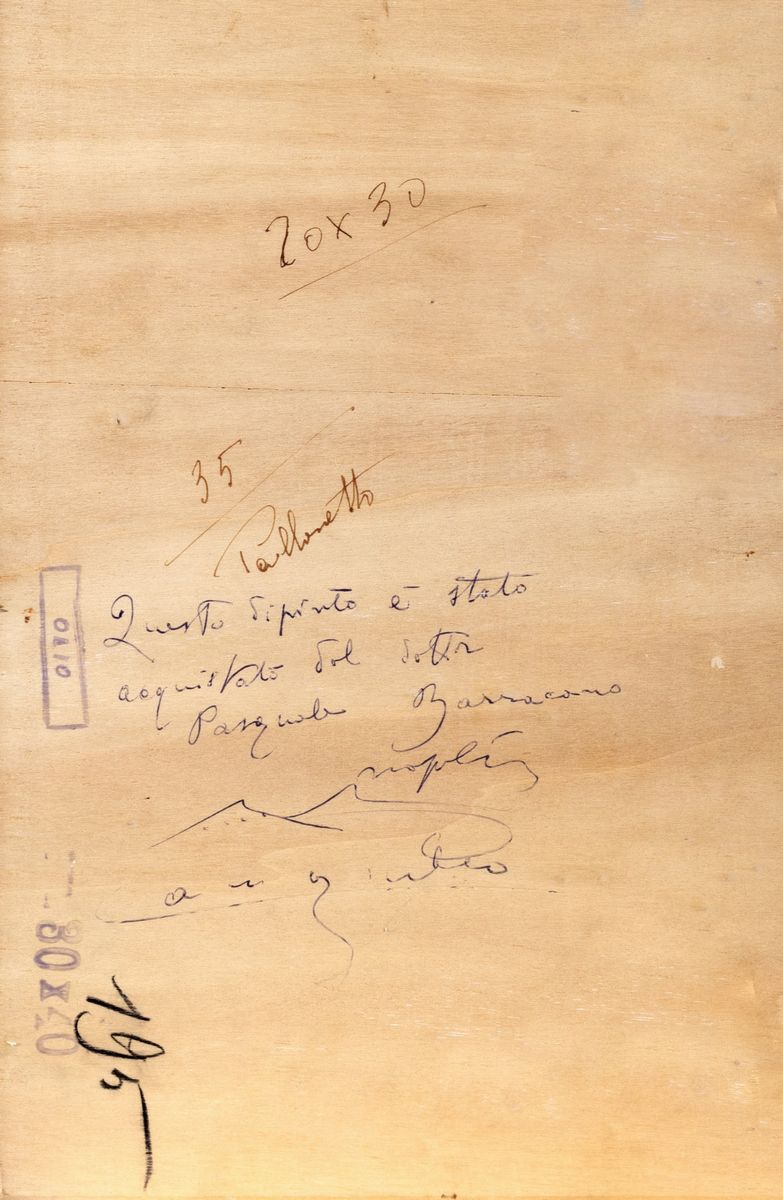 20 x 30
35
Pallonetto
Questo dipinto è stato
acquistato dal dottr
Pasquale Barracano
Napoli
OLIO
30 x 40